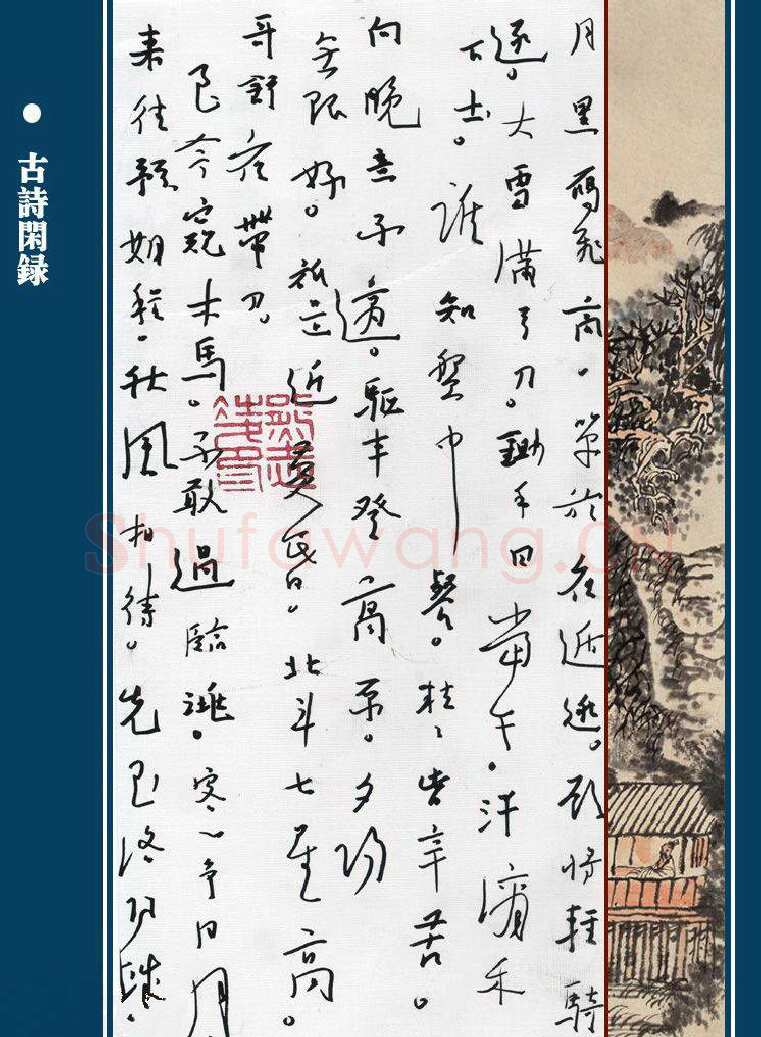 月黑雁飛高。單于夜遁逃。欲將輕騎
逐。大雪滿弓刀。鋤禾日當午。汗滴禾
下土。誰知盤中餐。粒々皆辛苦。
向晚意不適。驅車登高原。夕陽
無限好。祇是近黃昏。北斗七星高。
哥舒夜帶刀。
至今窺牧馬。不敢過臨洮。日月
来往。秋風相待。先
古詩閑録
Shufawang.cn